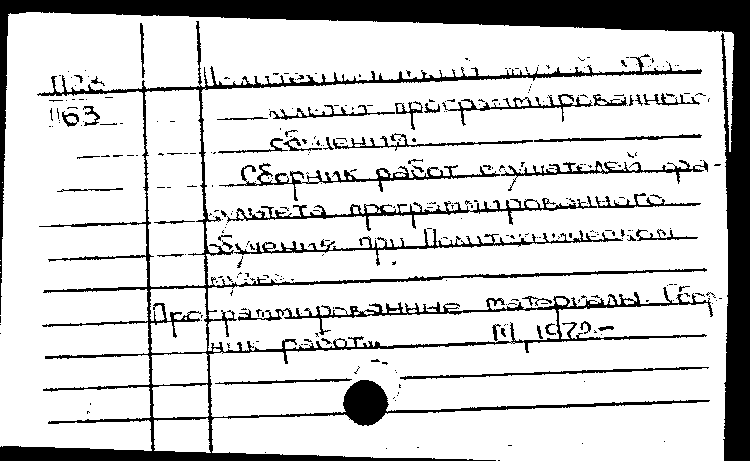 П28 Политехнический музей. Фа-
П63 культет программированного
обучения.
Сборник работ слушателей фа-
культета программированного
обучения при Политехническом
музее.
Программированные материалы. Сбор-
ник работ... М, 1972.-